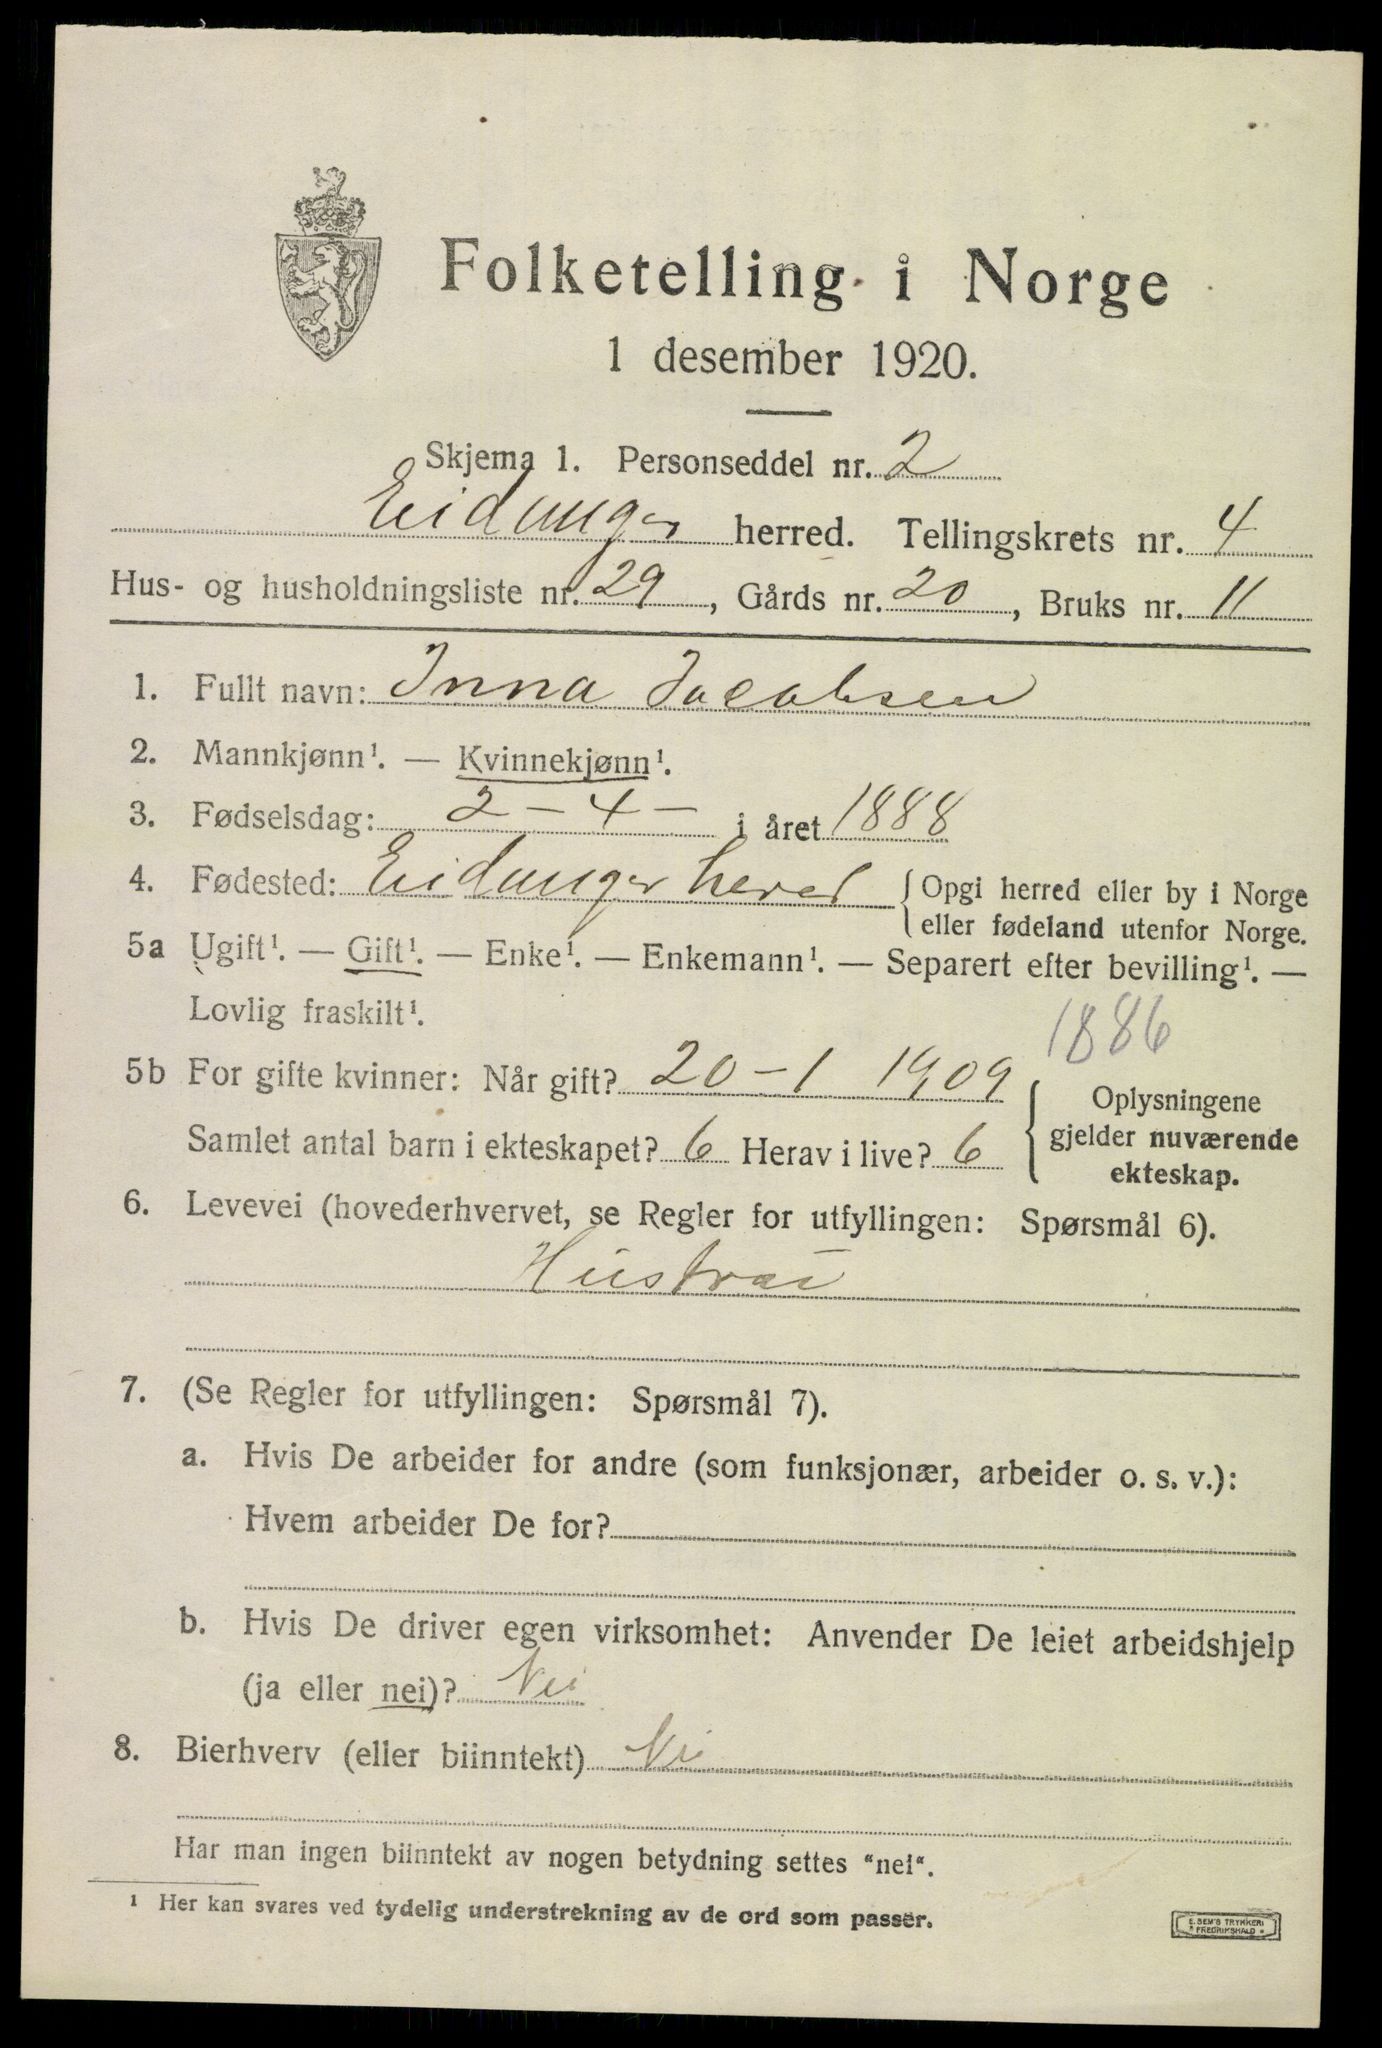 Folketelling i Norge
1 desember 1920.
Skjema 1. Personseddel nr. 2
Eidanger herred. Tellingskrets nr. 4
Hus- og husholdningsliste nr. 29, Gårds nr. 20, Bruks nr. 11
1. Fullt navn: Inna Jacobsen
2. Mannkjønn¹. — Kvinnekjønn¹.
3. Fødselsdag: 2 - 4 - i året 1888
4. Fødested: Eidanger herred { Opgi herred eller by i Norge
eller fødeland utenfor Norge.
5a Ugift¹. — Gift¹. — Enke¹. — Enkemann¹. — Separert efter bevilling¹. —
Lovlig fraskilt¹.
1886
5b For gifte kvinner: Når gift? 20 - 1 1909
Samlet antal barn i ekteskapet? 6 Herav i live? 6
{ Oplysningene
gjelder nuværende
ekteskap.
6. Levevei (hovederhvervet, se Regler for utfyllingen: Spørsmål 6).
Hustru
7. (Se Regler for utfyllingen: Spørsmål 7).
a. Hvis De arbeider for andre (som funksjonær, arbeider o. s. v.):
Hvem arbeider De for?
b. Hvis De driver egen virksomhet: Anvender De leiet arbeidshjelp
(ja eller nei)? Nei
8. Bierhverv (eller biinntekt) Nei
Har man ingen biinntekt av nogen betydning settes "nei".
¹ Her kan svares ved tydelig understrekning av de ord som passer.
E. SEM'S TRYKKERI
* FREDRIKSHALD *